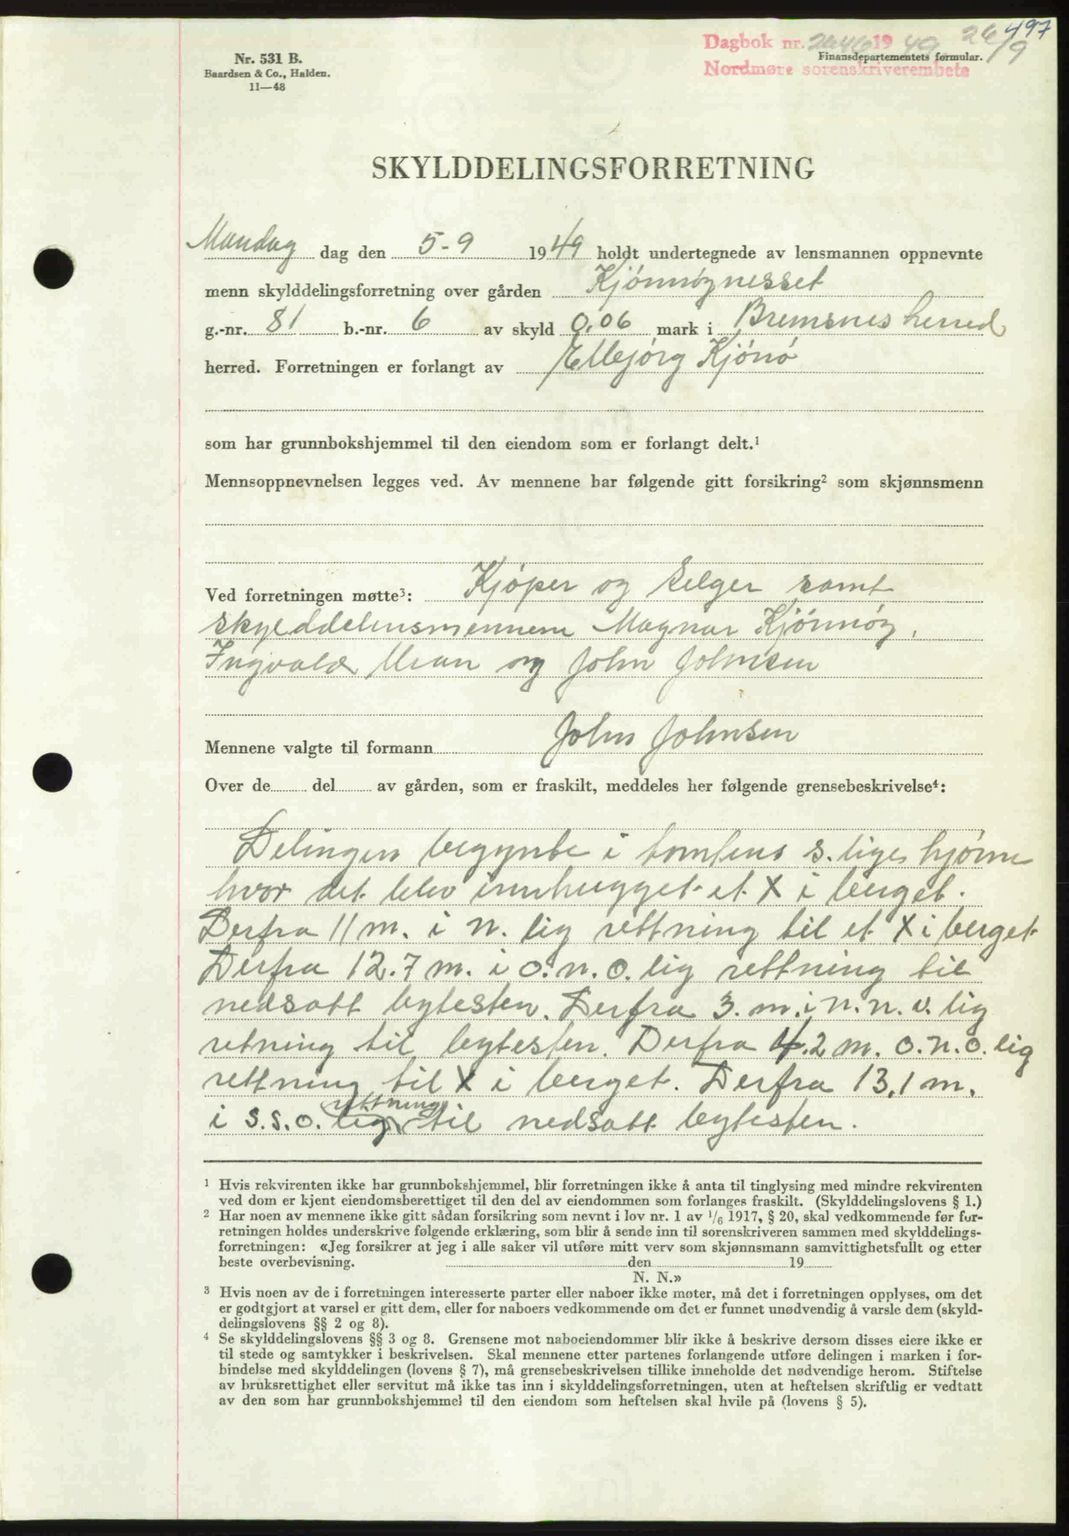 497
Dagbok nr. 2646 1949 26/9
Nordmøre sorenskriverembete
Finansdepartementets formular.
Nr. 531 B.
Baardsen & Co., Halden.
11—48
SKYLDDELINGSFORRETNING
Mandag dag den 5-9 1949 holdt undertegnede av lensmannen oppnevnte
menn skylddelingsforretning over gården Kjönnögnesset
g.-nr. 81 b.-nr. 6 av skyld 0,06 mark i Bremsnes herred
herred. Forretningen er forlangt av Ellbjörg Kjönö
som har grunnbokshjemmel til den eiendom som er forlangt delt.¹
Mennsoppnevnelsen legges ved. Av mennene har følgende gitt forsikring² som skjønnsmenn
Ved forretningen møtte³: Kjöper og Selger samt
skylddelinsmennene Magnar Kjönnög,
Ingvald og John Johnsen
Mennene valgte til formann John Johnsen
Over de del av gården, som er fraskilt, meddeles her følgende grensebeskrivelse⁴:
Delingen begynte i tomtens s. lige hjörne
hvor det blev innhugget et X i berget.
Derfra 11 m. i n. lig rettning til et X i berget
Derfra 12.7 m. i o. n. o. lig rettning til
nedsatt bytesten. Derfra 3. m. i n. n. v. lig
retning til bytesten. Derfra 4.2 m. o. n. o. lig
rettning til X i berget. Derfra 13,1 m.
rettning
i s. s. o. lig til nedsatt bytesten.
¹ Hvis rekvirenten ikke har grunnbokshjemmel, blir forretningen ikke å anta til tinglysing med mindre rekvirenten
ved dom er kjent eiendomsberettiget til den del av eiendommen som forlanges fraskilt. (Skylddelingslovens § 1.)
² Har noen av mennene ikke gitt sådan forsikring som nevnt i lov nr. 1 av 1/6 1917, § 20, skal vedkommende før for-
retningen holdes underskrive følgende erklæring, som blir å sende inn til sorenskriveren sammen med skylddelings-
forretningen: «Jeg forsikrer at jeg i alle saker vil utføre mitt verv som skjønnsmann samvittighetsfullt og etter
beste overbevisning. den 19
N. N.»
³ Hvis noen av de i forretningen interesserte parter eller naboer ikke møter, må det i forretningen opplyses, om det
er godtgjort at varsel er gitt dem, eller for naboers vedkommende om det er funnet unødvendig å varsle dem (skyld-
delingslovens §§ 2 og 8).
⁴ Se skylddelingslovens §§ 3 og 8. Grensene mot naboeiendommer blir ikke å beskrive dersom disses eiere ikke er
til stede og samtykker i beskrivelsen. Skal mennene etter partenes forlangende utføre delingen i marken i for-
bindelse med skylddelingen (lovens § 7), må grensebeskrivelsen tillike inneholde det nødvendige herom. Stiftelse
av bruksrettighet eller servitut må ikke tas inn i skylddelingsforretningen, uten at heftelsen skriftlig er vedtatt
av den som har grunnbokshjemmel til den eiendom som heftelsen skal hvile på (lovens § 5).